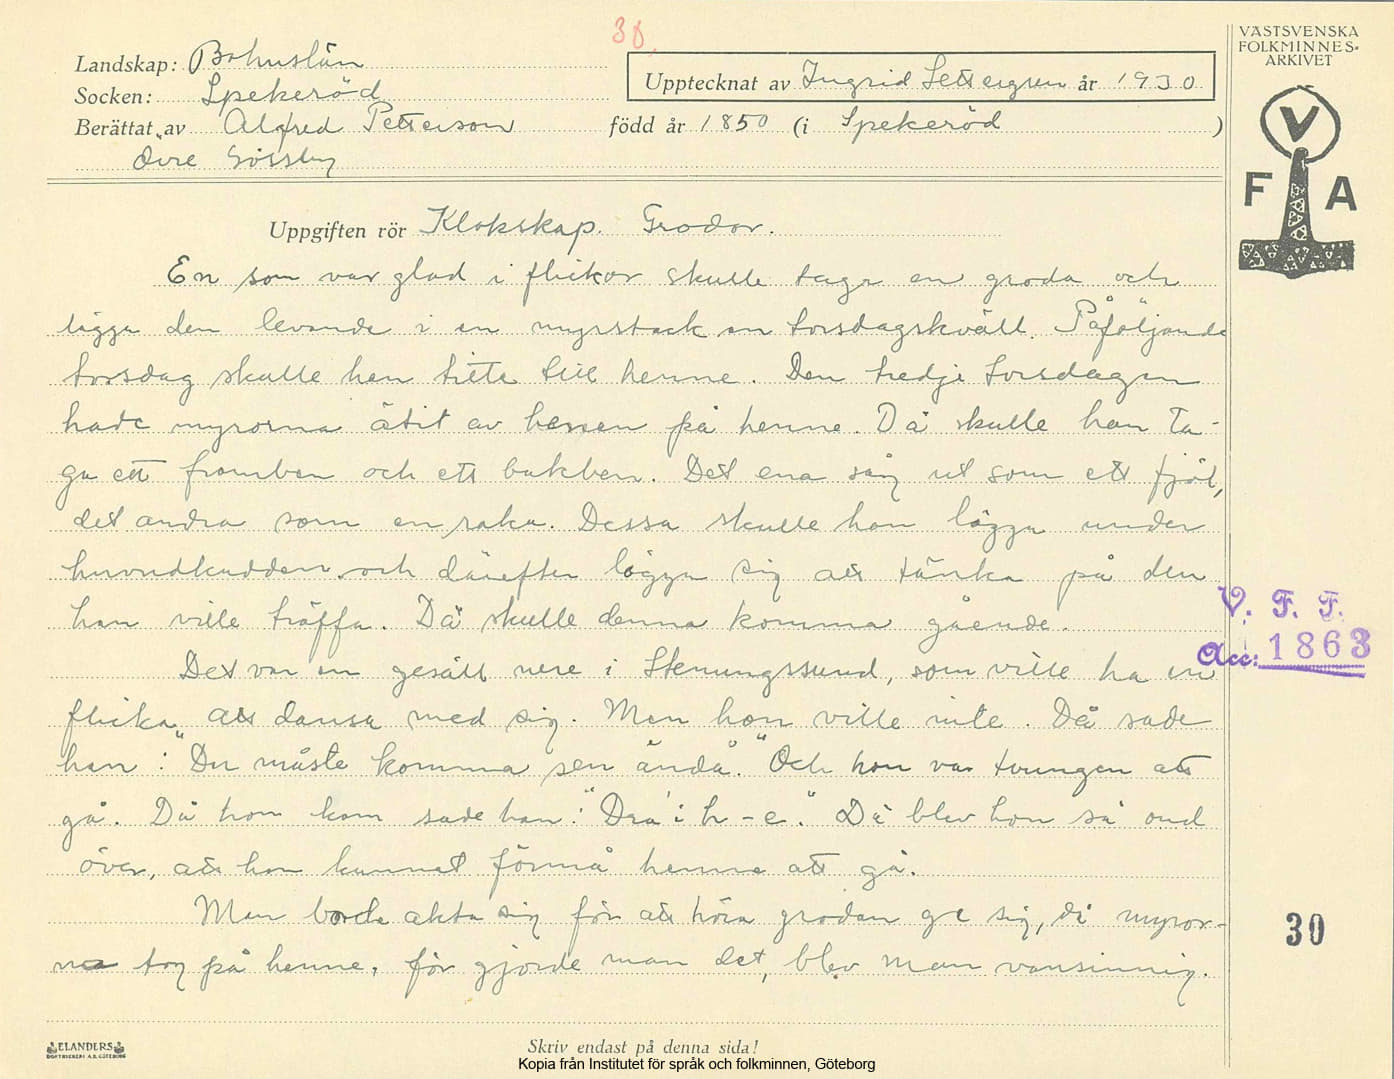 38.
VÄSTSVENSKA
FOLKMINNES-
ARKIVET
V
F A
Landskap: Bohuslän
Upptecknat av Ingrid Settergren år 1930
Socken: Spekeröd
Berättat av Alfred Petterson född år 1850 (i Spekeröd )
Övre Gössby
Uppgiften rör Klokskap. Grodor.
En som var glad i flickor skulle taga en groda och
lägga den levande i en myrstack en torsdagskväll. Påföljande
torsdag skulle han titta till henne. Den tredje torsdagen
hade myrorna ätit av bessen på henne. Då skulle han ta-
ga ett framben och ett bakben. Det ena såg ut som ett fjöl,
det andra som en raka. Dessa skulle han lägga under
huvudkudden och därefter lägga sig att tänka på den
han ville träffa. Då skulle denna komma gående.
Det var en gesäll nere i Stenungssund, som ville ha en
flicka att dansa med sig. Men hon ville inte. Då sade
han: "Du måste komma sen ändå." Och hon var tvungen att
gå. Då hon kom sade han: "Dra i h-e." Då blev hon så ond
över, att han kunnat förmå henne att gå.
Man borde akta sig för att höra grodan ge sig, då myror-
na tog på henne, för gjorde man det, blev man vansinnig.
V. F. F.
Acc: 1863
30
ELANDERS
BOKTRYCKERI A.B. GÖTEBORG
Skriv endast på denna sida!
Kopia från Institutet för språk och folkminnen, Göteborg